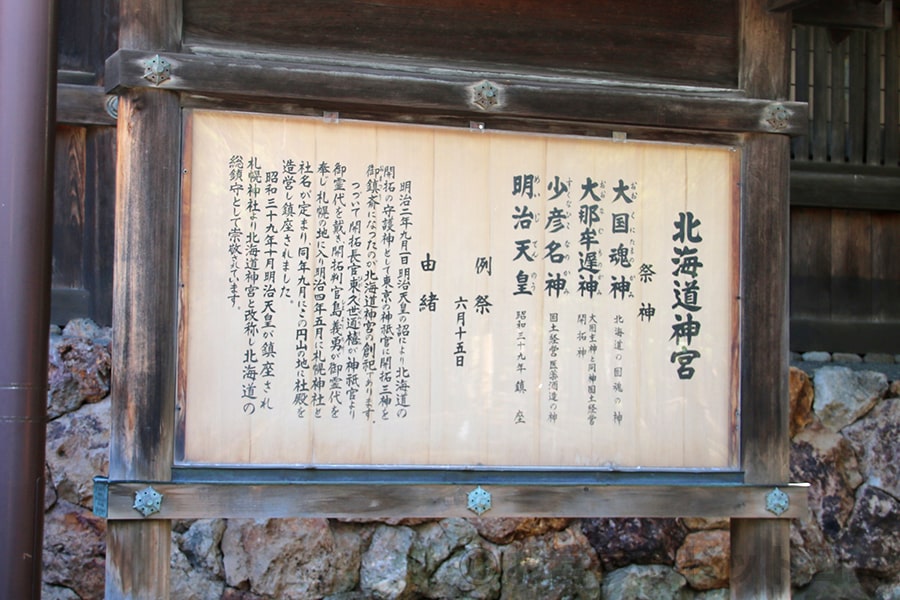 北海道神宮
祭神
大国魂神 北海道の国魂の神
おおくにたまのかみ
大那牟遅神 大国主神と同神国土経営 開拓神
おおなむちのかみ
少彦名神 国土経営医薬酒造の神
すくなひこなのかみ
明治天皇 昭和三十九年鎮座
めいじてんのう
例祭
六月十五日
由緒
明治二年九月一日明治天皇の詔により北海道の
開拓の守護神として東京の神祇官に開拓三神を
御鎮斎になったのが北海道神宮の創祀であります。
つづいて開拓長官東久世通禧が神祇官より
御霊代を戴き開拓判官島義勇が御霊代を
奉じ札幌の地に入り明治四年五月に札幌神社と
社名が定まり同年九月にこの円山の地に社殿を
造営し鎮座されました。
昭和三十九年十月明治天皇が鎮座され
札幌神社より北海道神宮と改称し北海道の
総鎮守として崇敬されています。